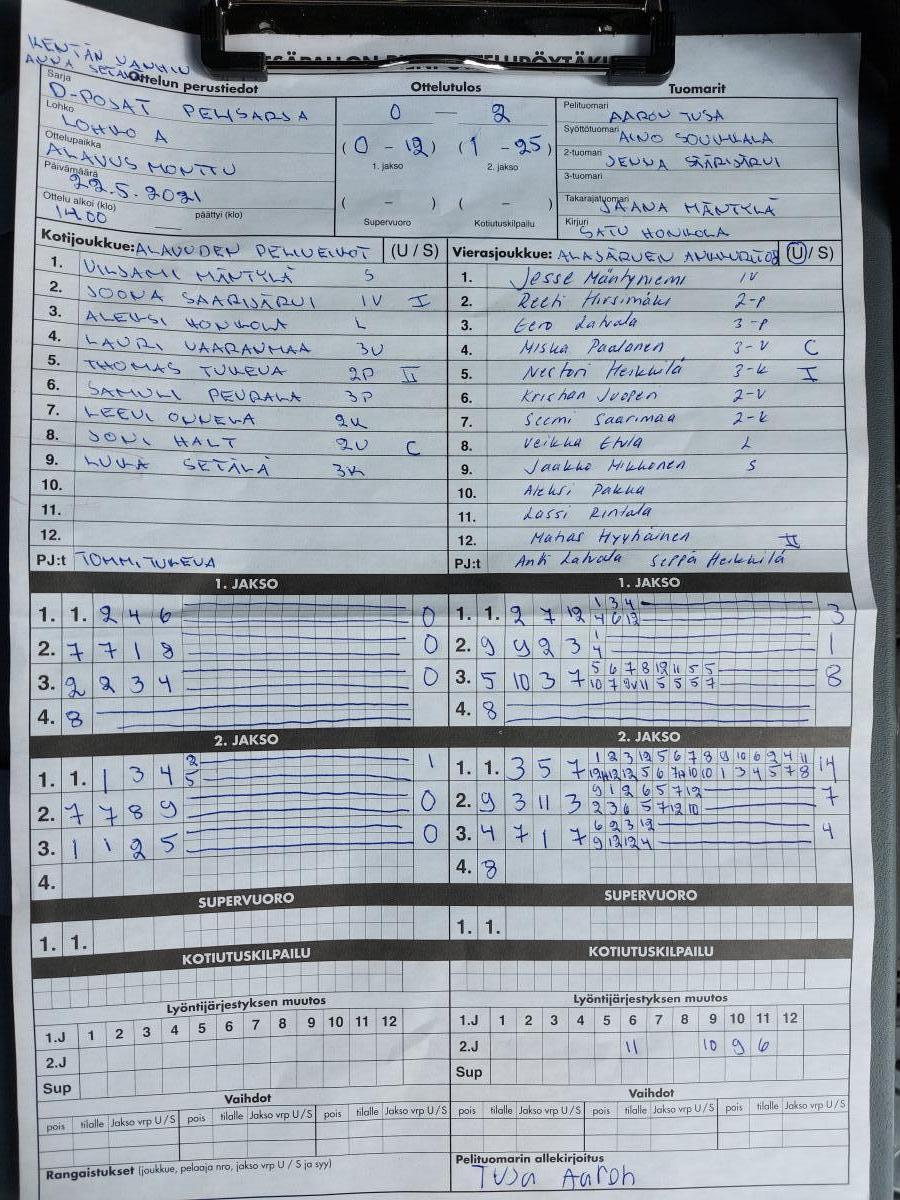 KENTÄN VANHIN
ANNA SETÄLÄ
Ottelun perustiedot
Sarja D-POJAT PERUSSARJA
Lohko LOHKO A
Ottelupaikka ALAVUS MONTTU
Päivämäärä 22.5.2021
Ottelu alkoi (klo) 14.00 päättyi (klo)
Ottelutulos
0 — 2
( 0 - 12 ) ( 1 - 25 )
1. jakso 2. jakso
( – ) ( – )
Supervuoro Kotiutuskilpailu
Tuomarit
Pelituomari AARON TUSA
Syöttötuomari AINO SOUKKALA
2-tuomari JENNA SAARIJÄRVI
3-tuomari
Takarajatuomari JAANA MÄNTYLÄ
Kirjuri SATU HONKOLA
Kotijoukkue: ALAVUDEN PELIVEIKOT (U / S)
1. VILJAMI MÄNTYLÄ S
2. JOONA SAARIJÄRVI IV I
3. ALEKSI HONKOLA L
4. LAURI VAARANMAA 3V
5. THOMAS TUKEVA 2P II
6. SAMULI PEURALA 3P
7. LEEVI ONNELA 2K
8. JONI HALT 2V C
9. LUKA SETÄLÄ 3K
10.
11.
12.
PJ:t TOMMI TUKEVA
Vierasjoukkue: ALAJÄRVEN ANKKURIT (U / S)
1. Jesse Mäntyniemi IV
2. Reeti Hirsimäki 2-p
3. Eero Latvala 3-p
4. Miska Paalanen 3-V C
5. Nestori Heikkilä 3-k I
6. Krishan Juopen 2-V
7. Seemi Saarimaa 2-k
8. Veikka Etula L
9. Jaakko Mikkonen S
10. Aleksi Pakka
11. Lassi Rintala
12. Matias Hyyhäinen II
PJ:t Anti Latvala Seppä Heikkilä
1. JAKSO
1. 1. 2 4 6 0
2. 7 7 1 8 0
3. 2 2 3 4 0
4. 8
1. JAKSO
1 3 4
1. 1. 2 7 12 4 6 12 3
1
2. 9 9 2 3 4 1
5 6 7 8 12 11 5 5
3. 5 10 3 7 10 7 9 11 5 5 5 7 8
4. 8
2. JAKSO
2
1. 1. 1 3 4 5 1
2. 7 7 8 9 0
3. 1 1 2 5 0
4.
2. JAKSO
1 2 3 12 5 6 7 8 9 10 6 9 4 11
1. 1. 3 5 7 12 12 5 6 10 10 1 3 4 5 7 8 14
9 1 2 6 5 7 12
2. 9 3 11 3 2 3 6 5 7 12 10 7
6 2 3 12
3. 4 7 1 7 9 12 12 4 4
4. 8
SUPERVUORO
1. 1.
SUPERVUORO
1. 1.
KOTIUTUSKILPAILU
KOTIUTUSKILPAILU
Lyöntijärjestyksen muutos
1.J 1 2 3 4 5 6 7 8 9 10 11 12
2.J
Sup
Lyöntijärjestyksen muutos
1.J 1 2 3 4 5 6 7 8 9 10 11 12
2.J 11 10 9 6
Sup
Vaihdot
pois tilalle Jakso vrp U / S pois tilalle Jakso vrp U / S pois tilalle Jakso vrp U / S
Vaihdot
pois tilalle Jakso vrp U / S pois tilalle Jakso vrp U / S pois tilalle Jakso vrp U / S
Rangaistukset (joukkue, pelaaja nro, jakso vrp U / S ja syy)
Pelituomarin allekirjoitus
Tusa Aaron